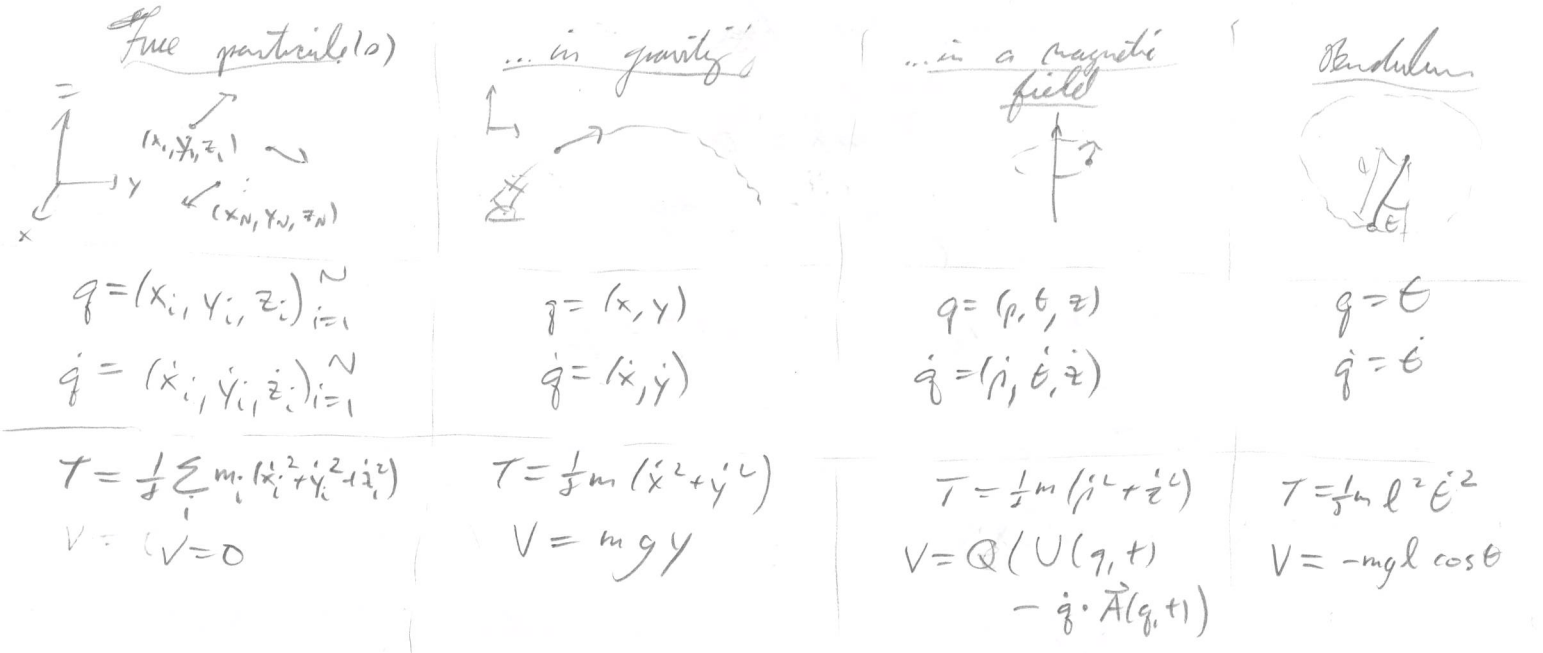 Free particle(s)
z
(x₁, y₁, z₁)
N
y
⋮
(x_N, y_N, z_N)
x
q = (xᵢ, yᵢ, zᵢ)ᵢ₌₁ᴺ
q̇ = (ẋᵢ, ẏᵢ, żᵢ)ᵢ₌₁ᴺ
T = ½ Σᵢ mᵢ (ẋᵢ² + ẏᵢ² + żᵢ²)
V = 0
... in gravity
q = (x, y)
q̇ = (ẋ, ẏ)
T = ½ m (ẋ² + ẏ²)
V = mgy
... in a magnetic
field
q = (ρ, θ, z)
q̇ = (ρ̇, θ̇, ż)
T = ½ m (ρ̇² + ż²)
V = Q(U(q, t)
− q̇ · A⃗(q, t))
Pendulum
l
θ
q = θ
q̇ = θ̇
T = ½ m l² θ̇²
V = −mgl cosθ